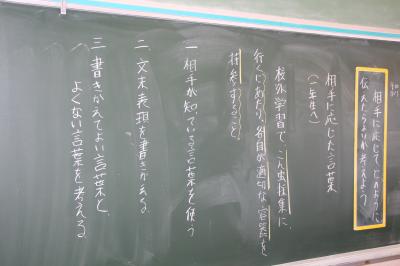 相手に応じて、どのように
伝えたらよいか考えよう
相手に応じた言葉
(一年生へ)
校外学習で、こん虫採集に
行くにあたり、各自が適切な容器を
持参すること。
一 相手が知っている言葉を使う
二 文末表現を書きかえる
三 書きかえてよい言葉と、
よくない言葉を考える